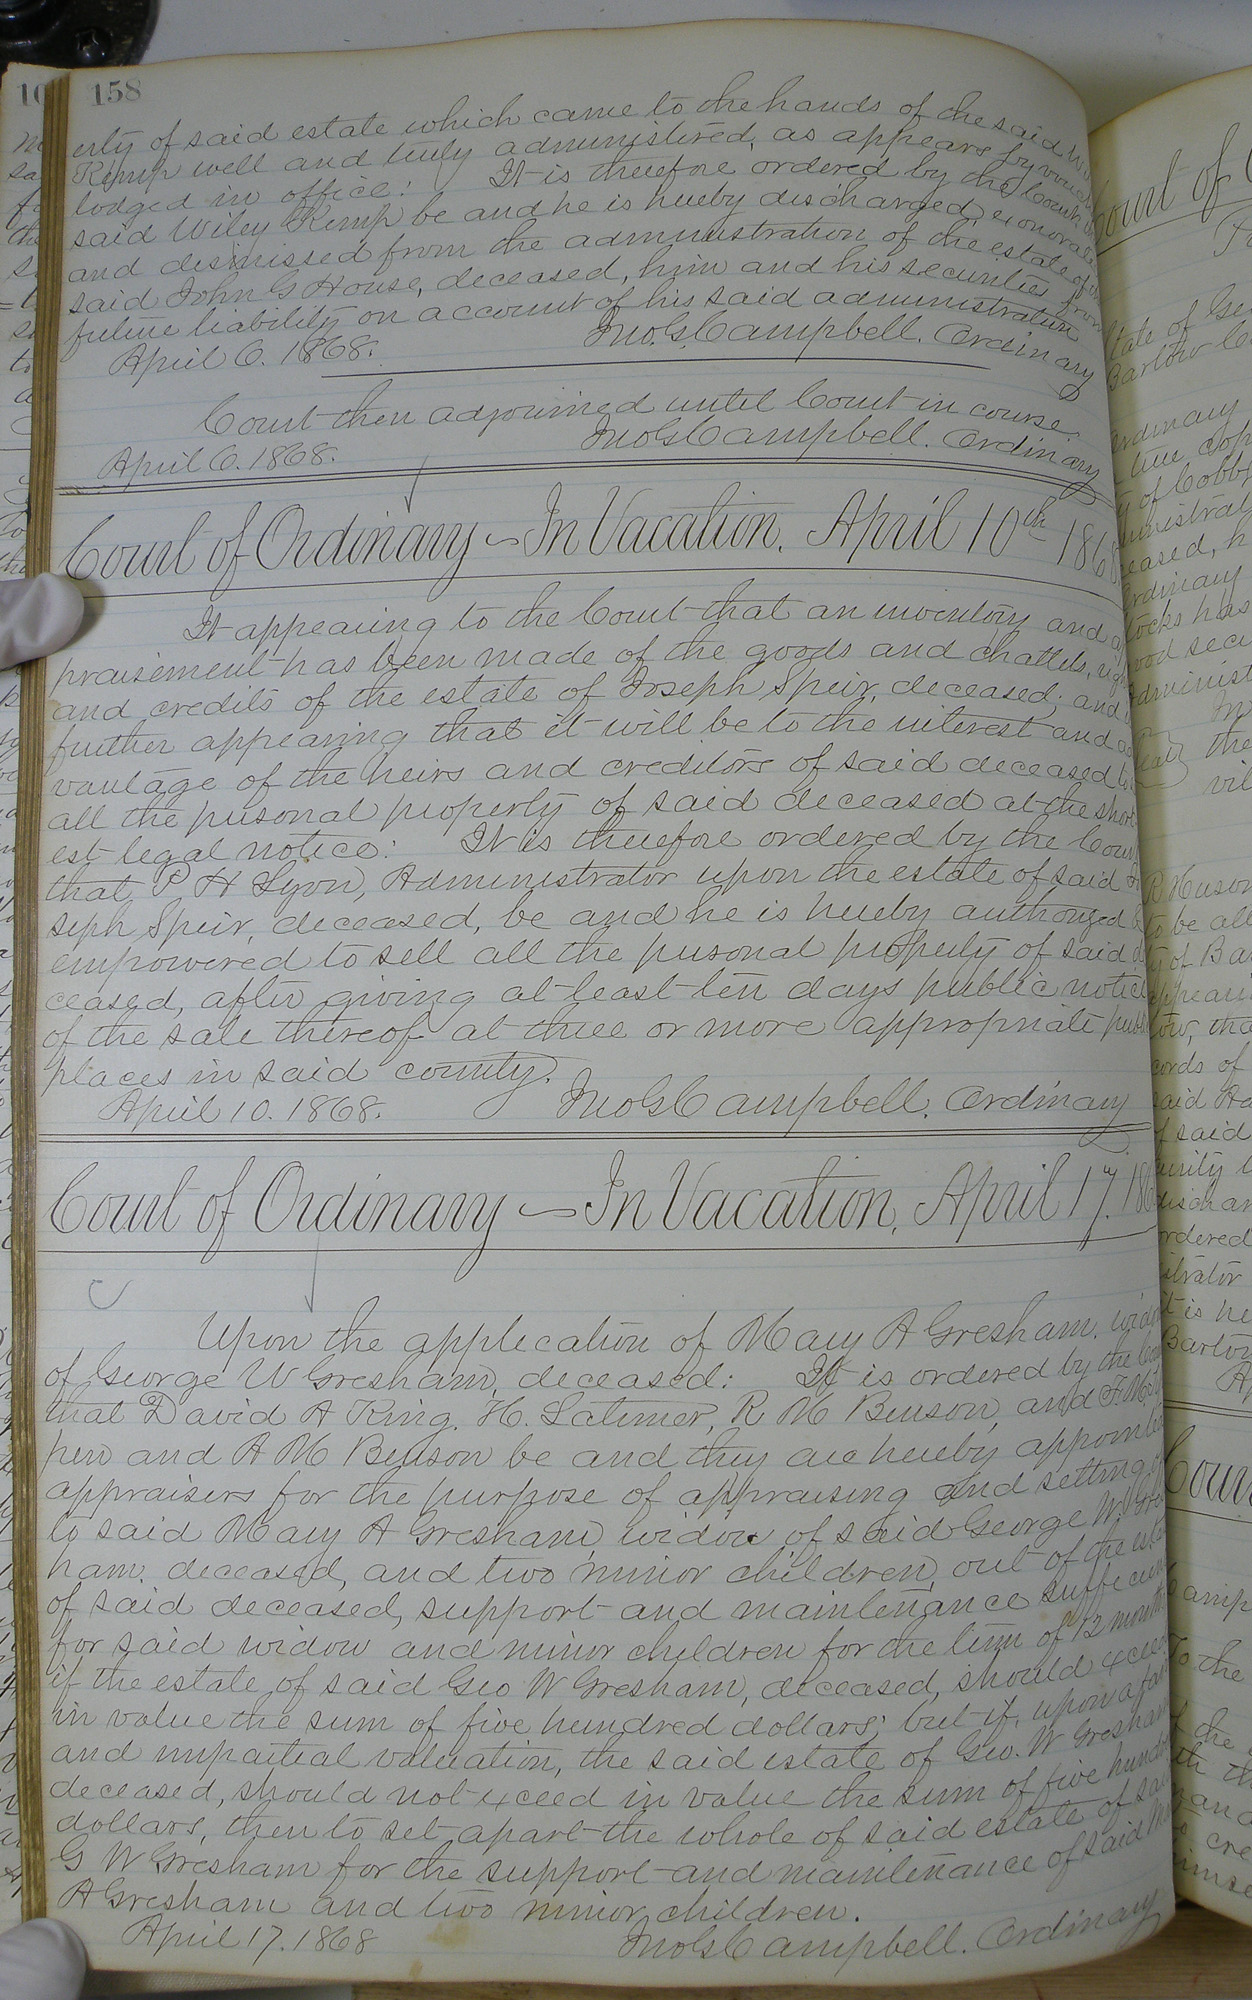 158
erty of said estate which came to the hands of the said
Kemp well and truly administered, as appears by
lodged in office: It is therefore ordered by the Court
said Wiley Kemp be and he is hereby discharged,
and dismissed from the administration of the estate of
said John G House, deceased, him and his securities from
future liability on account of his said administration
April 6. 1868. Jno. G. Campbell. Ordinary
Court then adjourned until Court in course.
April 6. 1868. Jno G Campbell. Ordinary
Court of Ordinary - In Vacation. April 10th 1868
It appearing to the Court that an inventory and ap
praisement has been made of the goods and chattels,
and credits of the estate of Joseph Speir, deceased; and
further appearing that it will be to the interest and ad
vantage of the heirs and creditors of said deceased to
all the personal property of said deceased at the short
est legal notice: It is therefore ordered by the Court
that P H Lyon, Administrator upon the estate of said Jo
seph Speir, deceased, be and he is hereby authorized
empowered to sell all the personal property of said de
ceased, after giving at least ten days public notice
of the sale thereof at three or more appropriate public
places in said county.
April 10. 1868. Jno G Campbell. Ordinary
Court of Ordinary - In Vacation, April 17. 186
Upon the application of Mary A Gresham, widow
of George W Gresham, deceased: It is ordered by the Court
that David A King, H. Latimer, R M Benson, and F. M.
pen and A M Benson be and they are hereby appointed
appraisers for the purpose of appraising and setting
to said Mary A Gresham, widow of said George W Gres
ham, deceased, and two minor children, out of the estate
of said deceased, support and maintenance sufficient
for said widow and minor children for the term of 12 months
if the estate of said Geo W Gresham, deceased, should exceed
in value the sum of five hundred dollars; but if, upon a fair
and impartial valuation, the said estate of Geo. W Gresham
deceased, should not exceed in value the sum of five hundred
dollars, then to set apart the whole of said estate of said
G W Gresham for the support and maintenance of said Mary
A Gresham and two minor children.
April 17. 1868 Jno G Campbell. Ordinary